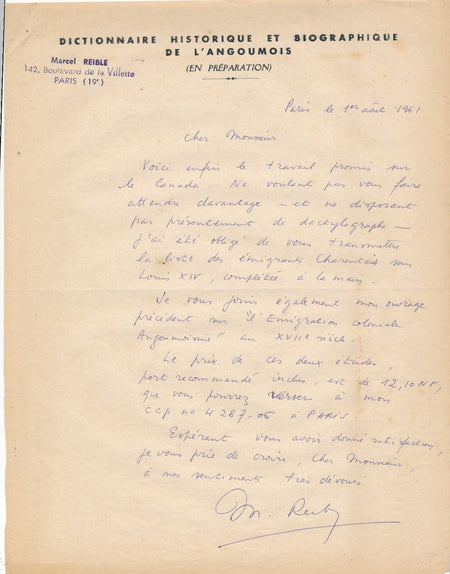 DICTIONNAIRE HISTORIQUE ET BIOGRAPHIQUE
DE L'ANGOUMOIS
(EN PRÉPARATION)
Marcel REIBLE
142, Boulevard de la Villette
PARIS (19e)
Paris le 1er août 1961
Cher Monsieur
Voici enfin le travail promis sur
le Canada. Ne voulant pas vous faire
attendre davantage — et ne disposant
pas présentement de dactylographe —
j'ai été obligé de vous transmettre
la liste des émigrants Charentais sous
Louis XIV, complétée à la main.
Je vous joins également mon ouvrage
précédent sur "l'Emigration coloniale
Angoumoisine" au XVIIe siècle.
Le prix de ces deux études,
port recommandé inclus, est de 12,10 NF,
que vous pourrez verser à mon
CCP no 4287-06 à PARIS.
Espérant vous avoir donné satisfaction,
je vous prie de croire, Cher Monsieur,
à mes sentiments très dévoués